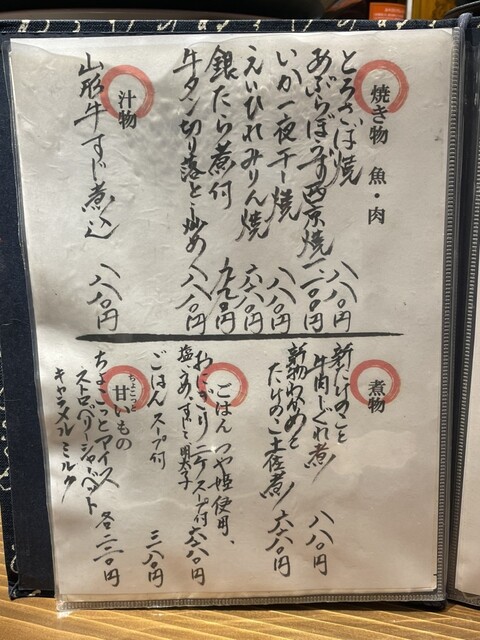 焼き物 魚・肉
とろさば焼 八八〇円
あぶらぼうず西京焼 一二〇〇円
いか一夜干し焼 八八〇円
えいひれみりん焼 六六〇円
銀たら煮付 九九〇円
牛タン切り落とし炒め 八八〇円
汁物
山形牛すじ煮込 八八〇円
煮物
新たけのこと
牛肉しぐれ煮 八八〇円
新物わかめと
たけのこ土佐煮 六六〇円
ごはん つや姫使用、
おにぎり 二ケスープ付 六八〇円
塩、うめ、すじこ、明太子
ごはん スープ付 三八〇円
ちょこっと
甘いもの
ちょこっとアイス 各二二〇円
ストロベリーシャーベット
キャラメルミルク